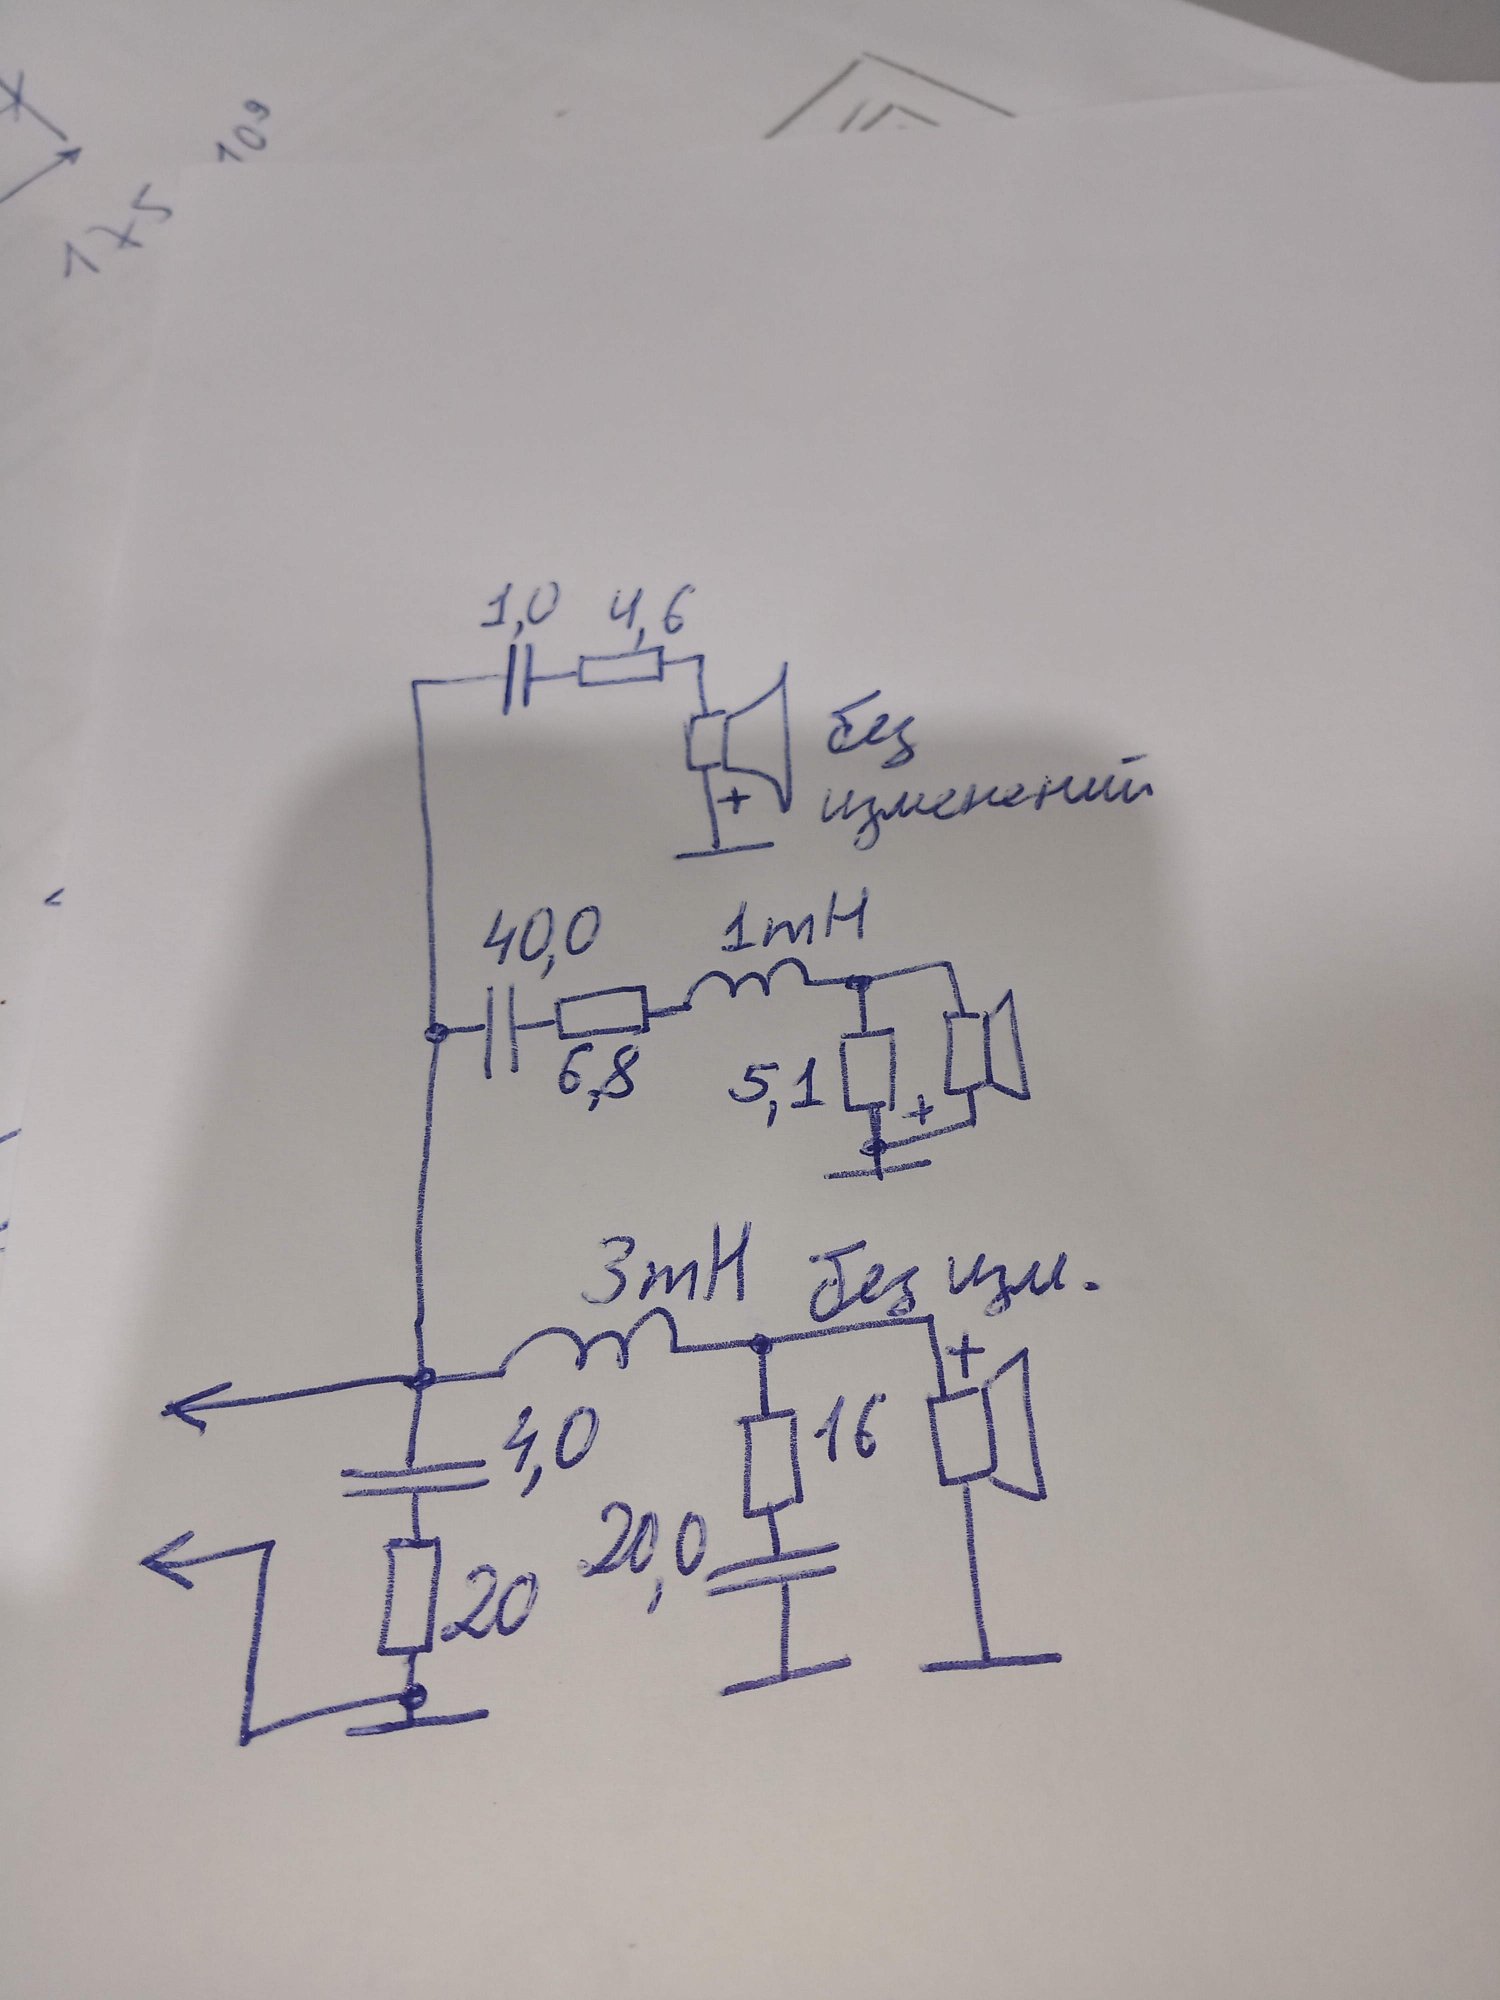 109
1x5
1,0 4,6
без
изменений
40,0
1mH
6,8
5,1
+
+
3mH
без изм.
+
4,0
16
20,0
20